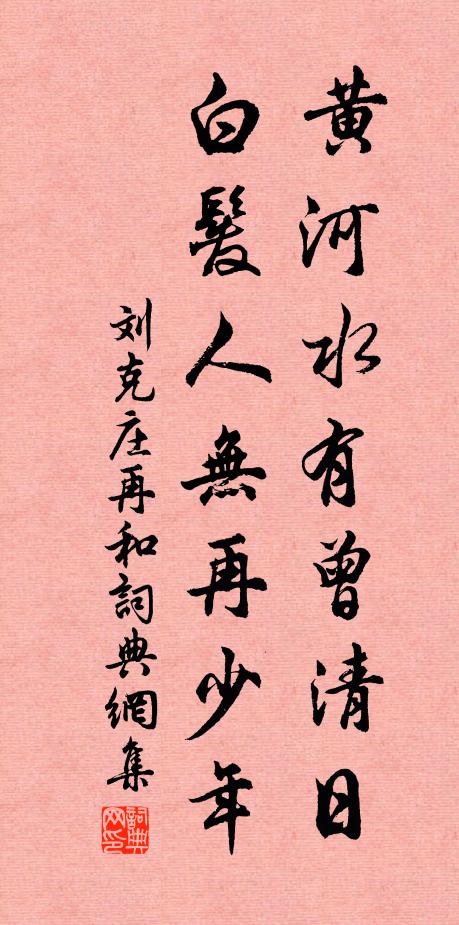 黃河水有曾清日
白髮人無再少年
刘克庄再和詞典網集
詞典
网印